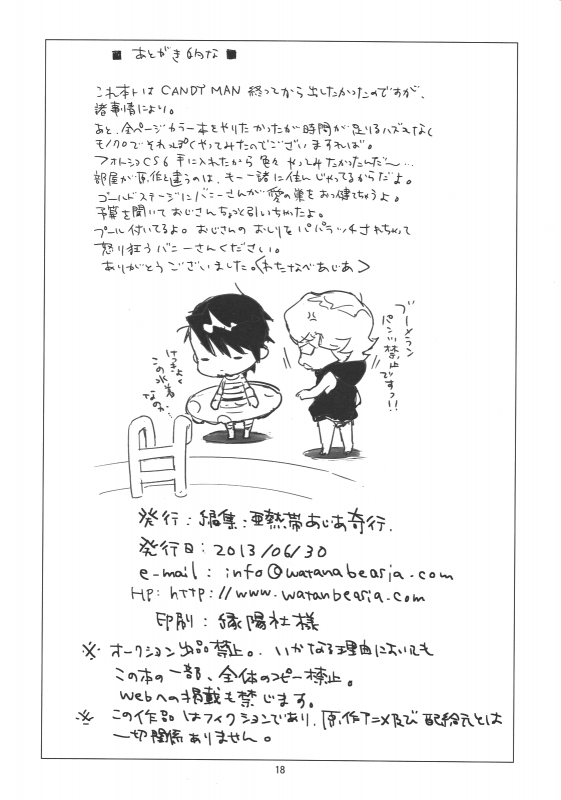 ■ あとがき的な ■
これ本トは CANDY MAN 終ってから出したかったのですが、
諸事情により。
あと、全ページカラー本をやりたかったが時間が足りるハズもなく
モノクロでそれっぽくやってみたのでございますれば。
フォトショCS6 手に入れたから色々やってみたかったんだ〜…
部屋が原作と違うのは、もー諸に住んじゃってるからだよ。
ゴールドステージにバニーさんが愛の巣をおっ建てちゃうよ。
予算を聞いておじさんちょっと引いちゃたよ。
プール付いてるよ。おじさんのおしりをパパラッチされちゃって
怒り狂うバニーさんください。
ありがとうございました。〈わたなべあじあ〉
ブーメラン
パンツ禁止
ですっ!!
けっきょく
この水着
なのか…
発行：編集：亜熱帯あじあ奇行.
発行日：2013/06/30
e-mail : info@watanabeasia.com
HP: http://www.watanbeasia.com
印刷：縁陽社様
※ オークション出品禁止。いかなる理由においても
この本の一部、全体のコピー禁止。
webへの掲載も禁じます。
※ この作品はフィクションであり、原作アニメ及び配給元とは
一切関係ありません。
18